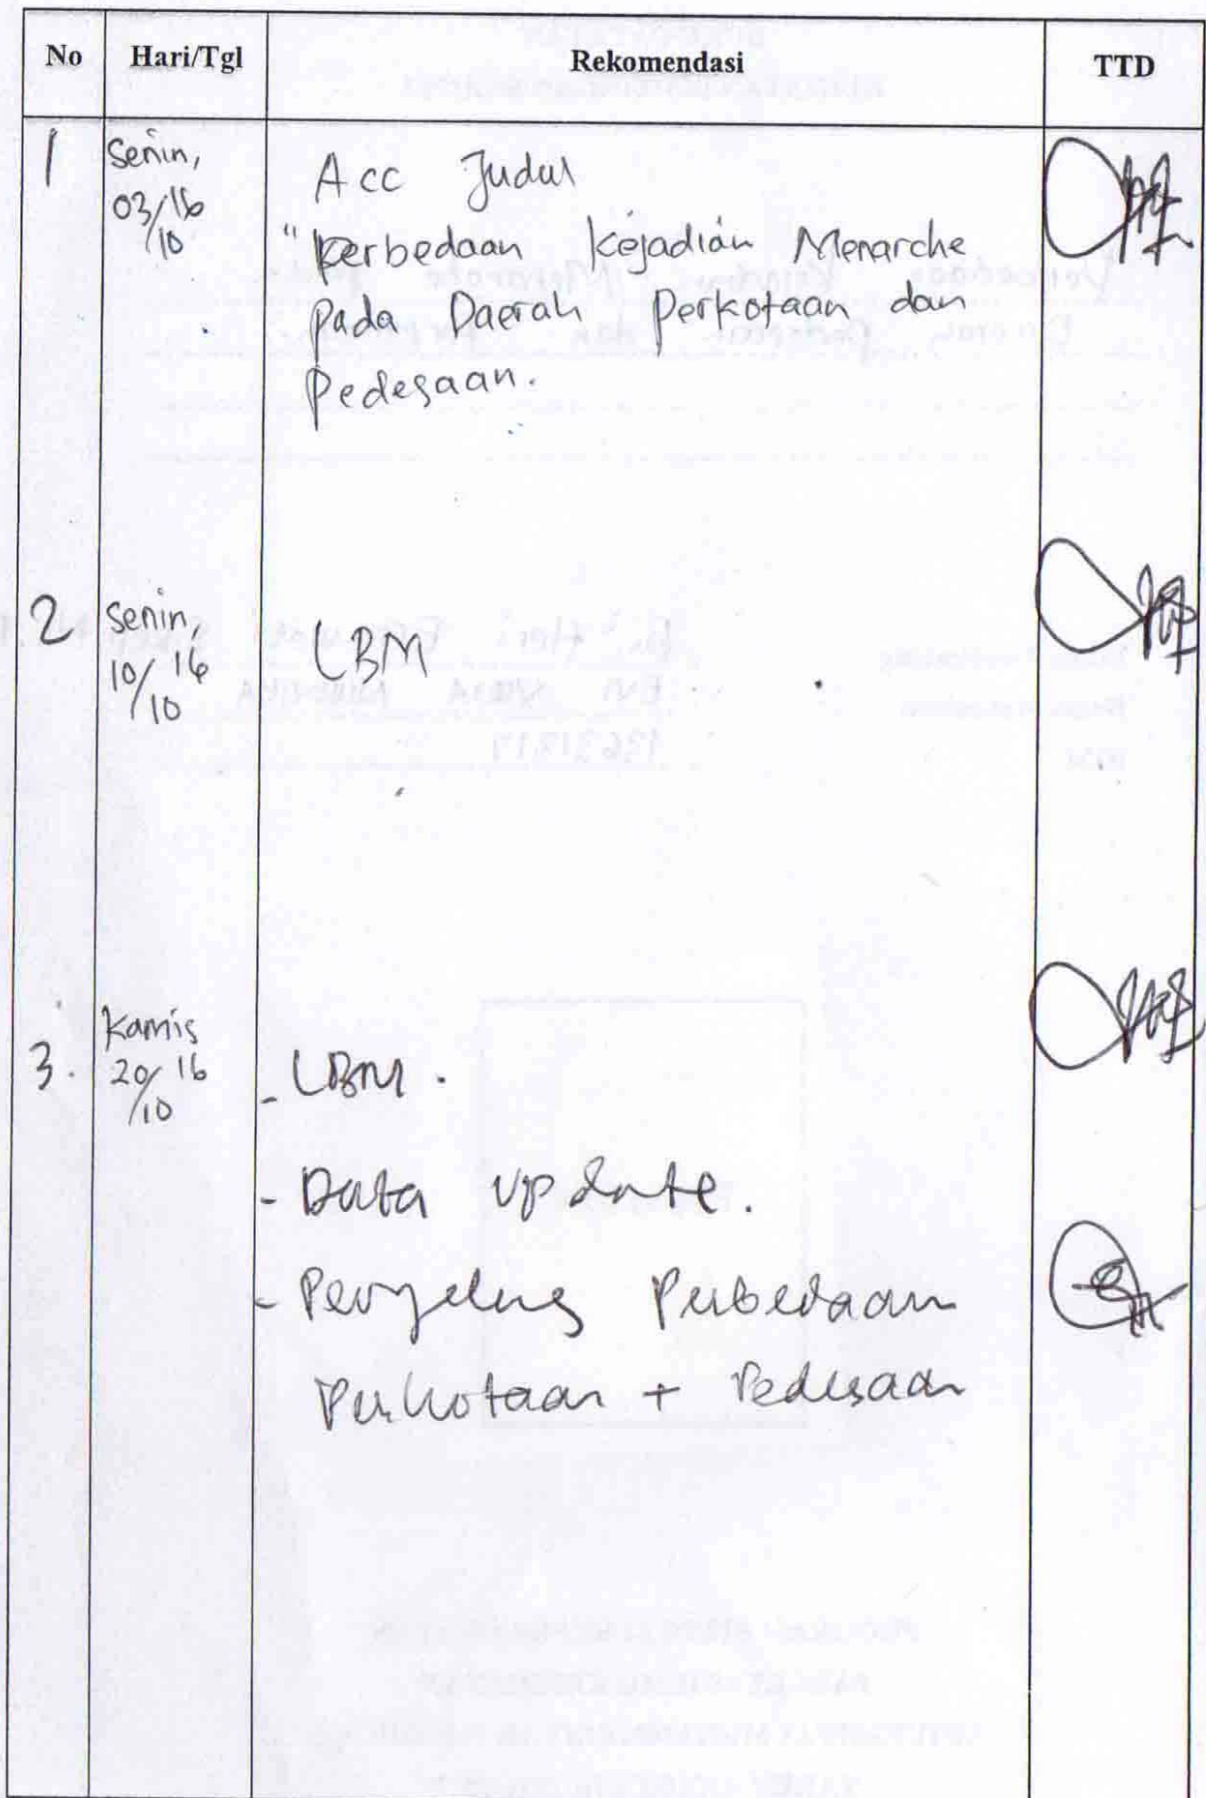 No Hari/Tgl Rekomendasi TTD
1 Senin,
03/16
/10
Acc Judul
"Perbedaan Kejadian Menarche
pada Daerah Perkotaan dan
Pedesaan.
2 Senin,
10/16
/10
LBM
3. Kamis
20/16
/10
- LBM.
- Data update.
- Penjelas Perbedaan
Perkotaan + Pedesaan